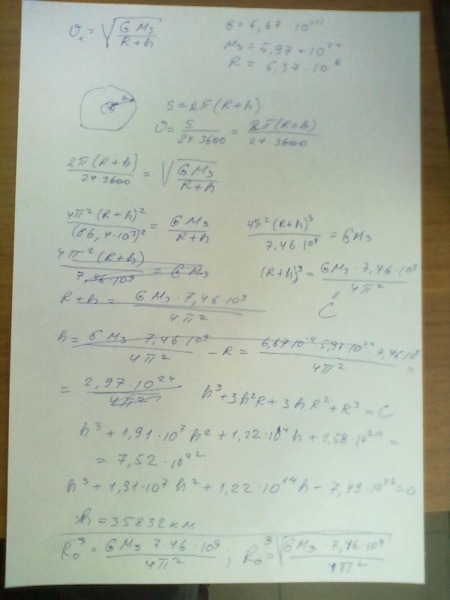 υ₁ = √(G M₃ / R+h)
G = 6,67 · 10⁻¹¹
M₃ = 5,97 · 10²⁴
R = 6,37 · 10⁶
S = 2π(R+h)
υ = S / 24·3600 = 2π(R+h) / 24·3600
2π(R+h) / 24·3600 = √(G M₃ / R+h)
4π²(R+h)² / (86,4·10³)² = G M₃ / R+h
4π²(R+h)³ / 7,46·10⁹ = G M₃
4π²(R+h) / 7,46·10⁹ = G M₃
(R+h)³ = G M₃ · 7,46·10⁹ / 4π²
R+h = G M₃ · 7,46·10⁹ / 4π²
C
h = G M₃ · 7,46·10⁹ / 4π² − R = 6,67·10⁻¹¹ · 5,97·10²⁴ · 7,46·10⁹ / 4π² =
= 2,97·10²⁴ / 4π²
h³ + 3h²R + 3hR² + R³ = C
h³ + 1,91·10⁷h² + 1,22·10¹⁴h + 2,58·10²⁰ =
= 7,52·10²²
h³ + 1,91·10⁷h² + 1,22·10¹⁴h − 7,49·10²² = 0
h = 35832 км
R₀³ = G M₃ · 7,46·10⁹ / 4π² ; R₀ = ³√(G M₃ · 7,46·10⁹ / 4π²)